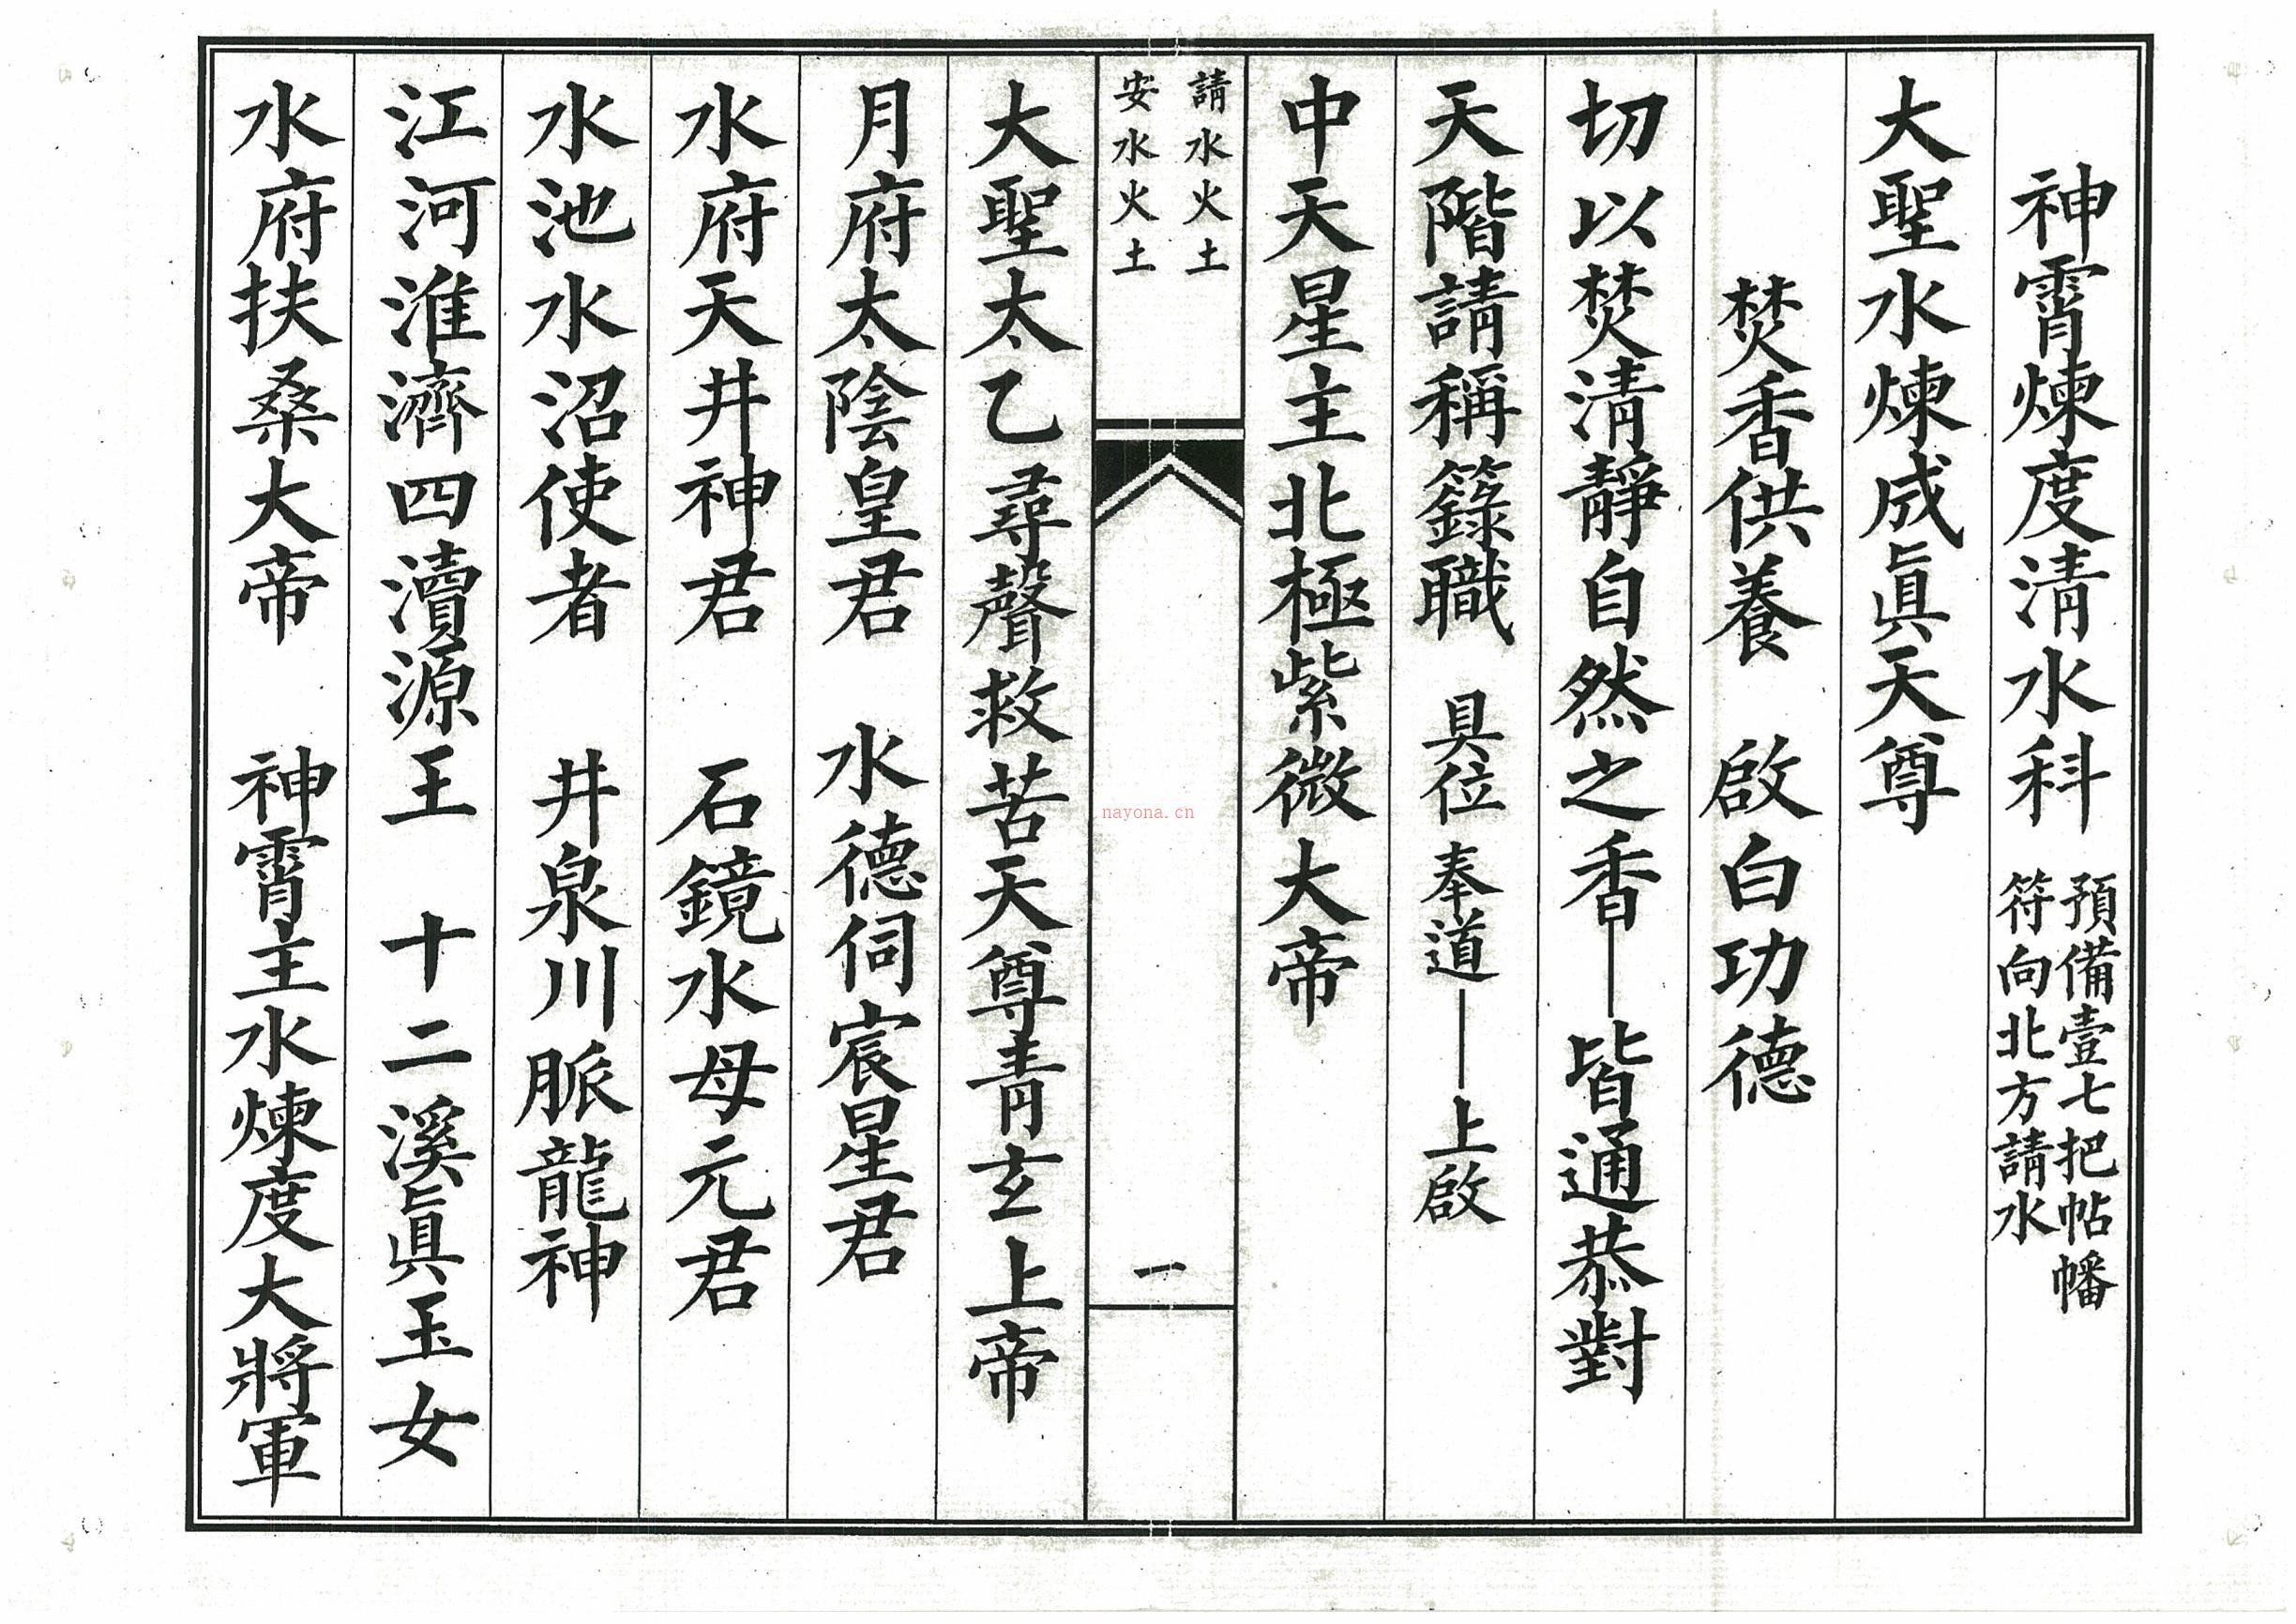 神霄煉度清水科
預備壹七把帖幡
符向北方請水
大聖水煉成眞天尊
焚香供養　啟白功德
切以焚清靜自然之香︱皆通恭對
天階請稱籙職　具位奉道︱上啟
中天星主北極紫微大帝
請水火土
安水火土
一
nayona.cn
大聖太乙尋聲救苦天尊青玄上帝
月府太陰皇君　水德伺宸星君
水府天井神君　石鏡水母元君
水池水沼使者　井泉川脈龍神
江河淮濟四瀆源王　十二溪眞玉女
水府扶桑大帝　神霄主水煉度大將軍